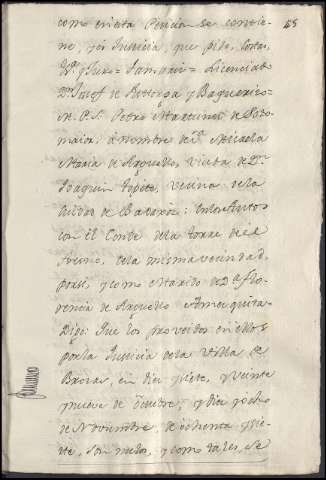 como en esta Peticion se contie-
ne, y es Justicia, que pido, costas,
Licenciado
Dn. Josef de
M. P. S. Pedro Martinez de Soto-
maior: á nombre de Da. Micaela
Maria de Arguello, viuda de Dn.
Joaquin Topete, vecina de la
Ciudad de Badaxoz: en los Autos
con el Conde de la torre del
fresno, de la misma vecindad,
por sí, y como Marido de Da. flo-
rencia de Arguello
Digo: Que los proveidos en ellos
por la Justicia de la Villa de
Brozas, en diez y siete, y veinte
y nueve de Octubre, y diez y ocho
de Noviembre de ochenta y sie-
te, son nulos, y como tales, se